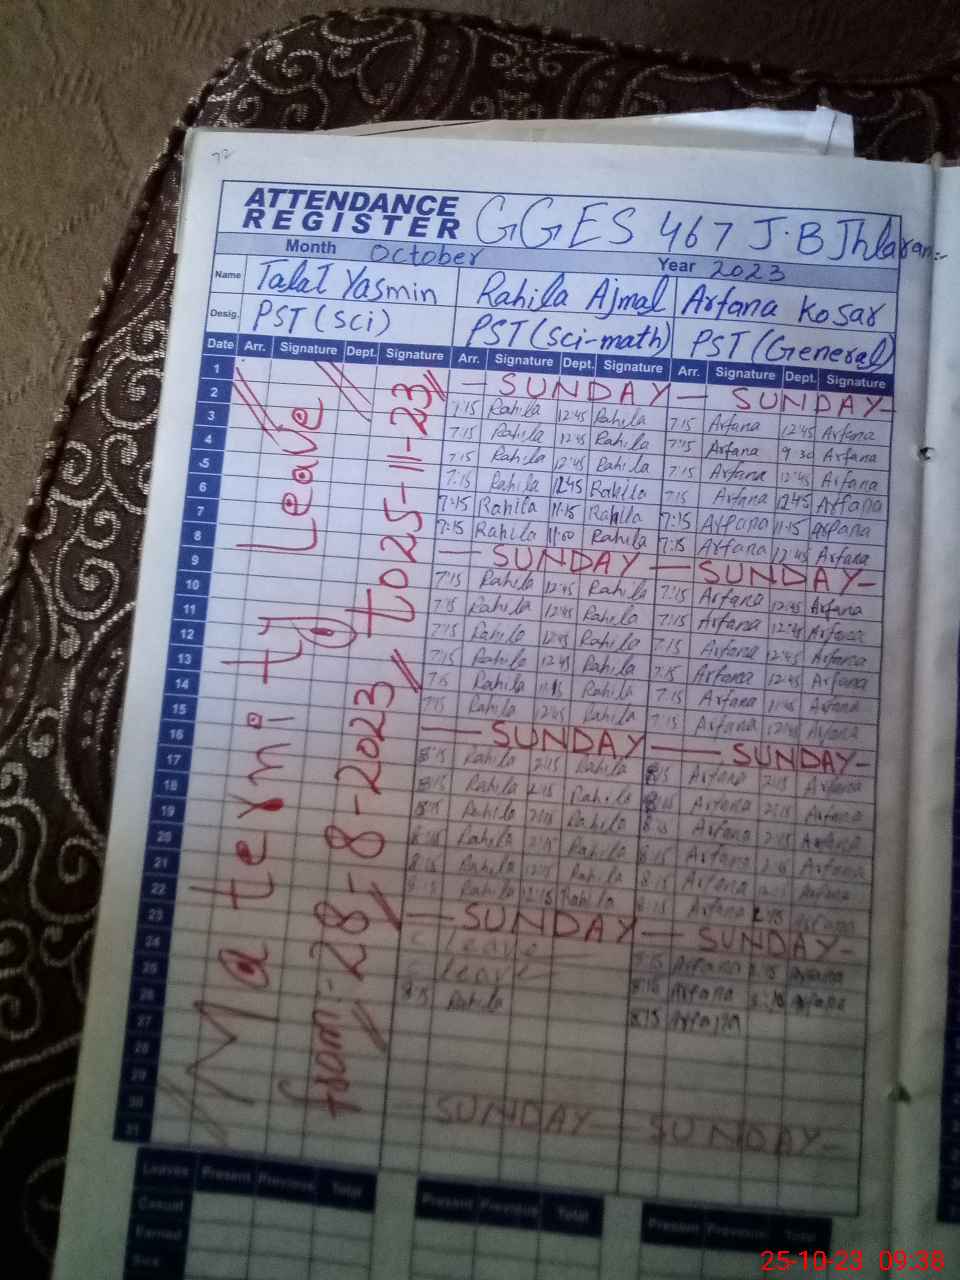 72
ATTENDANCE REGISTER GGES 467 J.B Jhlaran:-
Month October Year 2023
Name Talat Yasmin Rahila Ajmal Arfana Kosar
Desig. PST (Sci) PST (Sci-math) PST (General)
Date Arr. Signature Dept. Signature Arr. Signature Dept. Signature Arr. Signature Dept. Signature
Maternity Leave
from:-28-8-2023 to 25-11-23
1 — SUNDAY — SUNDAY —
2 7:15 Rahila 12:45 Rahila 7:15 Arfana 12:45 Arfana
3 7:15 Rahila 12:45 Rahila 7:15 Arfana 9:30 Arfana
4 7:15 Rahila 12:45 Rahila 7:15 Arfana 12:45 Arfana
5 7:15 Rahila 12:45 Rahila 7:15 Arfana 12:45 Arfana
6 7:15 Rahila 11:15 Rahila 7:15 Arfana 11:15 Arfana
7 7:15 Rahila 11:00 Rahila 7:15 Arfana 12:45 Arfana
8 — SUNDAY — SUNDAY —
9 7:15 Rahila 12:45 Rahila 7:15 Arfana 12:45 Arfana
10 7:15 Rahila 12:45 Rahila 7:15 Arfana 12:45 Arfana
11 7:15 Rahila 12:45 Rahila 7:15 Arfana 12:45 Arfana
12 7:15 Rahila 12:45 Rahila 7:15 Arfana 12:45 Arfana
13 7:15 Rahila 11:15 Rahila 7:15 Arfana 11:45 Arfana
14 7:15 Rahila 12:45 Rahila 7:15 Arfana 12:45 Arfana
15 — SUNDAY — SUNDAY —
16 8:15 Rahila 2:15 Rahila 8:15 Arfana 2:15 Arfana
17 8:15 Rahila 2:15 Rahila 8:15 Arfana 2:15 Arfana
18 8:15 Rahila 2:15 Rahila 8:15 Arfana 2:15 Arfana
19 8:15 Rahila 2:15 Rahila 8:15 Arfana Arfana
20 8:15 Rahila 12:15 Rahila 8:15 Arfana Arfana
21 8:15 Rahila 12:15 Rahila 8:15 Arfana Arfana
22 — SUNDAY — SUNDAY —
23 C leave Arfana Arfana
24 C leave 8:15 Arfana Arfana
25 8:15 Rahila 8:15 Arfana
26
27
28
29 — SUNDAY — SUNDAY —
30
31
Leaves Present Previous Total Present Previous Total Present Previous Total
Casual
Earned
Sick
25-10-23 09:38